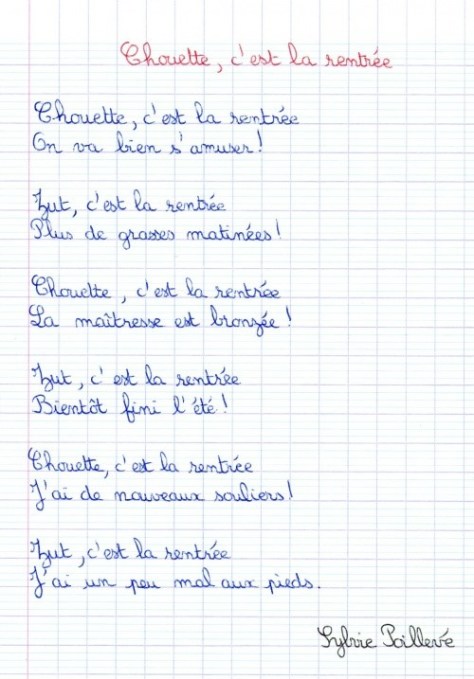 Chouette, c'est la rentrée
Chouette, c'est la rentrée
On va bien s'amuser!
Zut, c'est la rentrée
Plus de grasses matinées!
Chouette, c'est la rentrée
La maîtresse est bronzée!
Zut, c'est la rentrée
Bientôt fini l'été!
Chouette, c'est la rentrée
J'ai de nouveaux souliers!
Zut, c'est la rentrée
J'ai un peu mal aux pieds.
Sylvie Poillevé